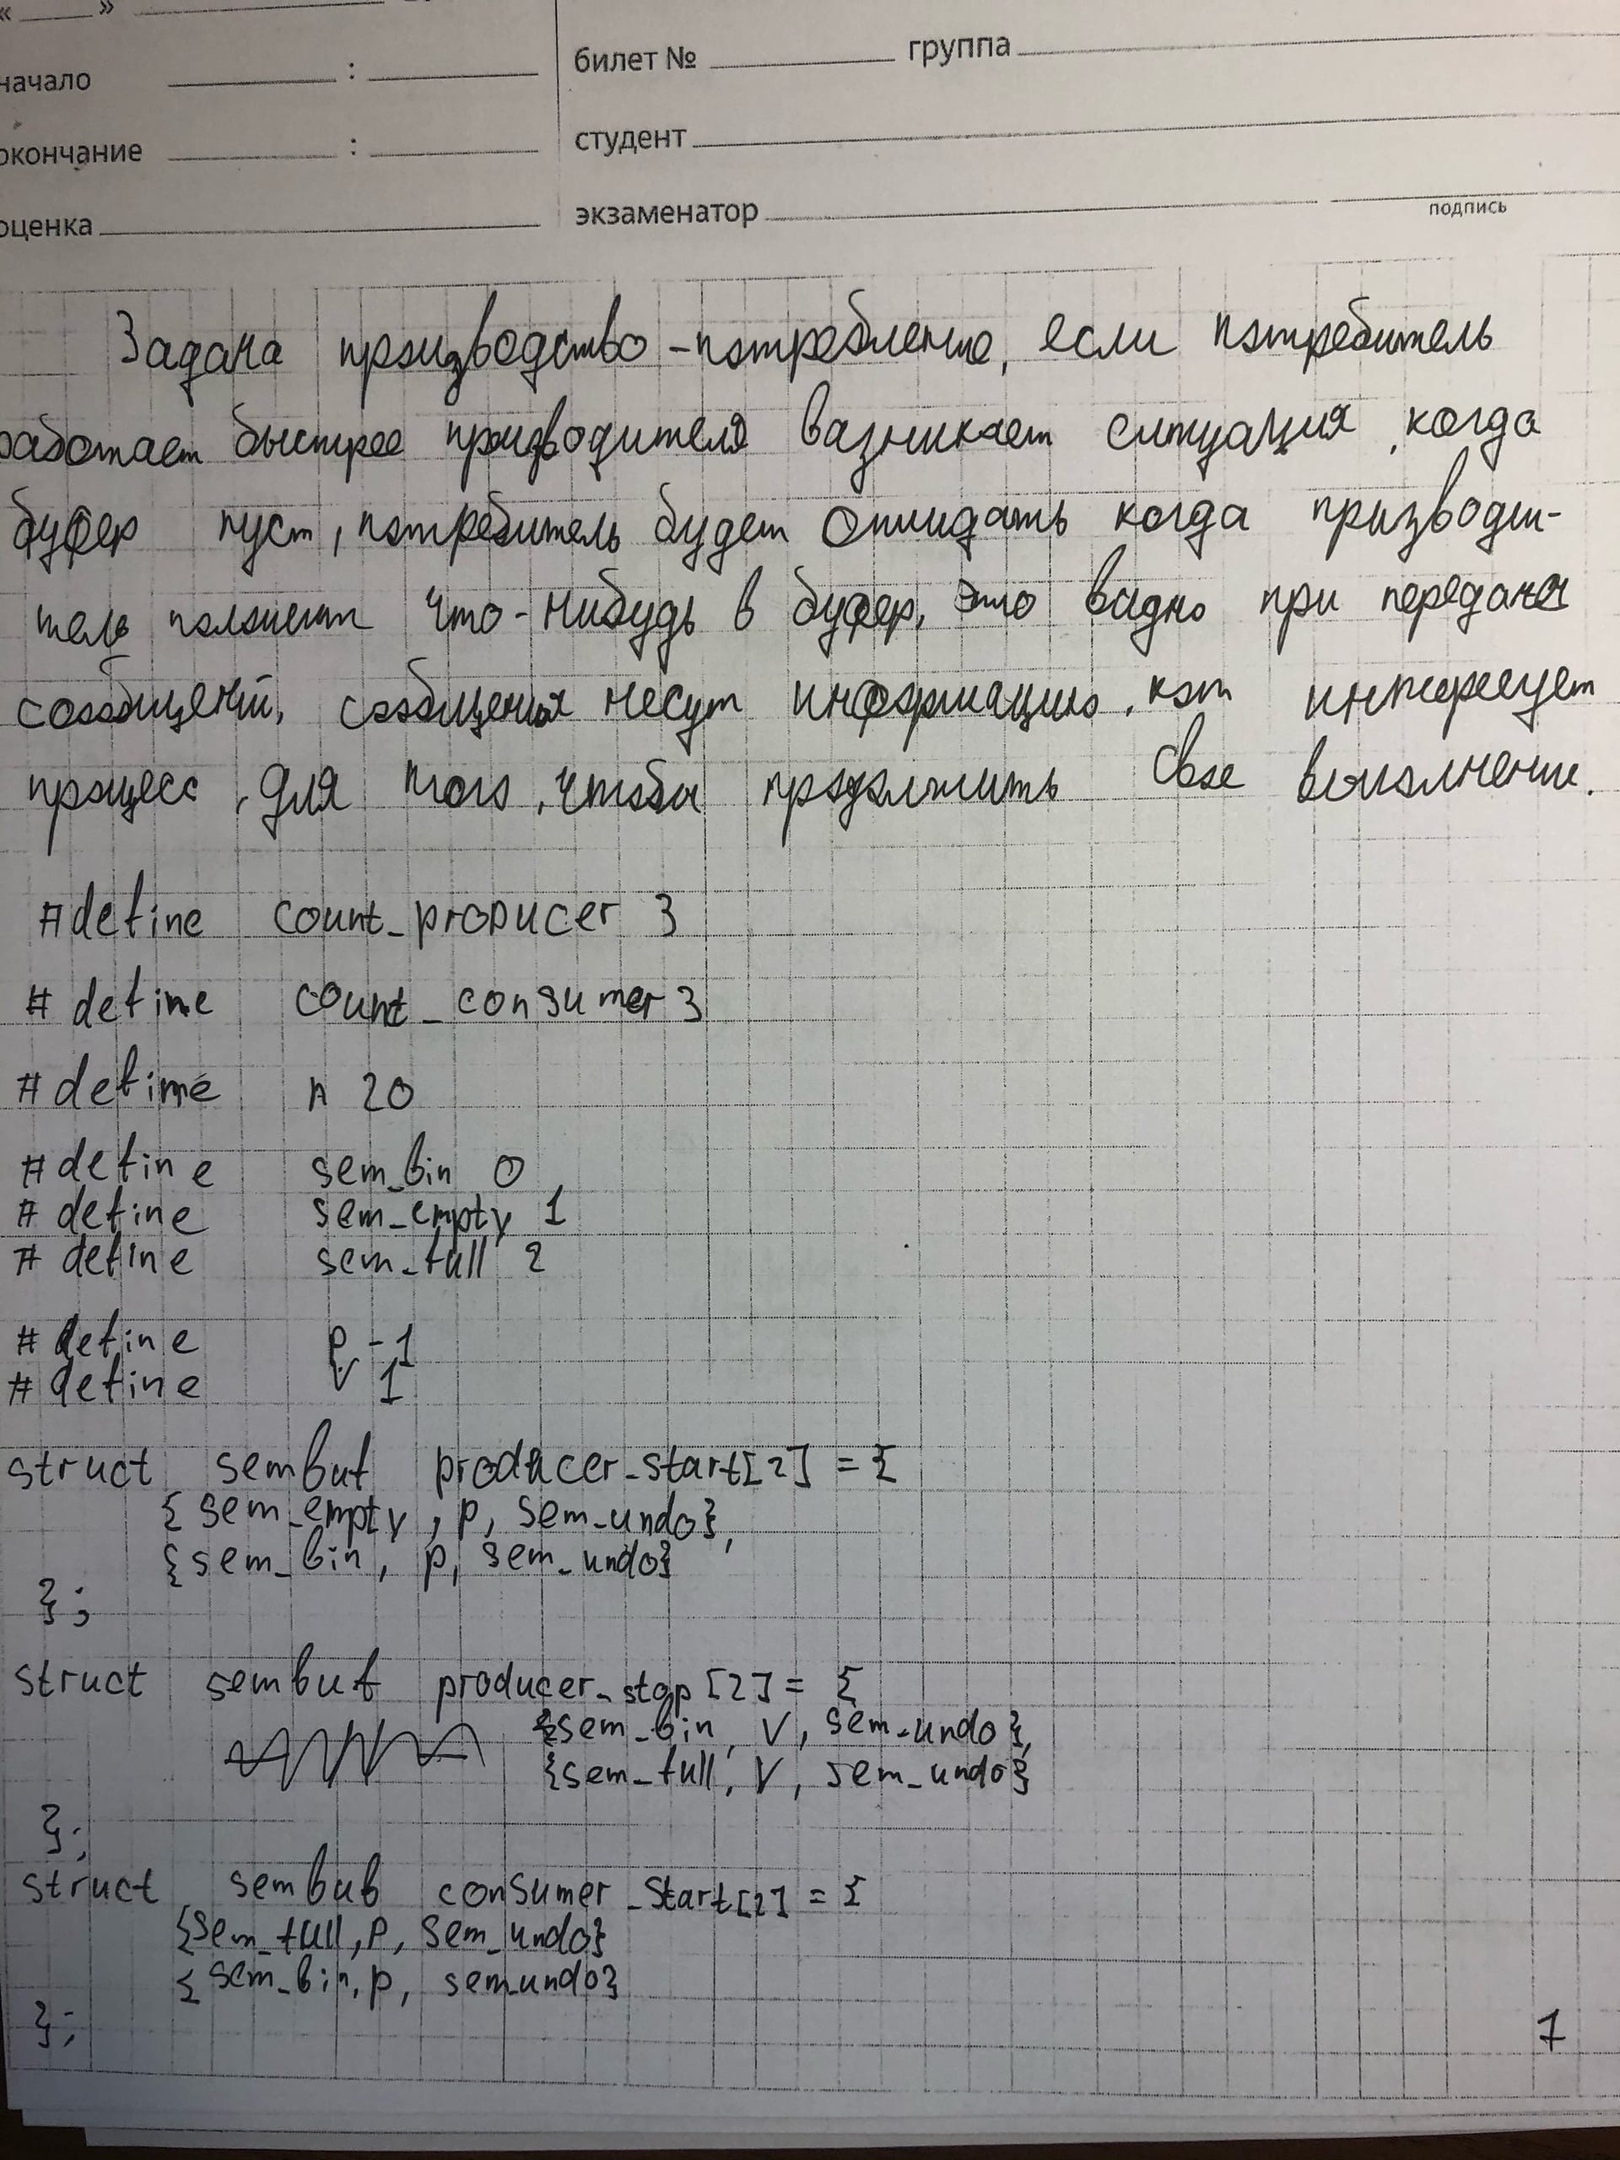 « ____ »
начало ____ : ____
билет № ____ группа ____
окончание ____ : ____
студент ____
оценка ____
экзаменатор ____
подпись
Задача производство-потребление, если потребитель
работает быстрее производителя вазникает ситуация, когда
буфер пуст, потребитель будет ожидать когда призводи-
тель положит что-нибудь в буфер, это видно при передаче
сообщений, сообщения несут информацию, кот интересует
процесс, для того, чтобы продолжить свое выполнение.
#define count_producer 3
#define count_consumer 3
#define n 20
#define sem_bin 0
#define sem_empty 1
#define sem_full 2
#define p -1
#define V 1
struct sembuf producer_start[2] = {
{sem_empty, p, sem_undo},
{sem_bin, p, sem_undo}
};
struct sembuf producer_stop[2] = {
{sem_bin, V, sem_undo},
{sem_full, V, sem_undo}
};
struct sembuf consumer_start[2] = {
{sem_full, p, sem_undo}
{sem_bin, p, sem_undo}
};
1